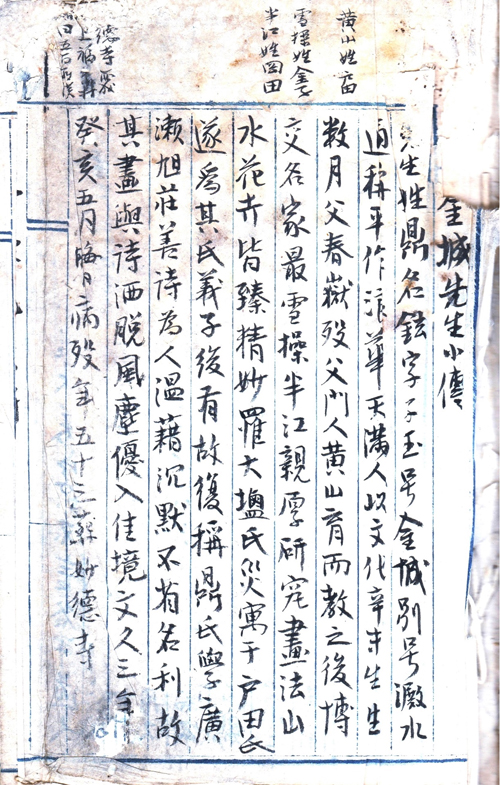 黄山姓富田
雪操姓金子
半江姓岡田
徳寺
上福
日五
金城先生小傳
先生姓鼎名鉉字子玉号金城別号澱水
通称平作浪華天満人以文化辛未生生
数月父春嶽殁父門人黄山育而教之後博
交名家最雪操半江親厚研究畫法山
水花卉皆臻精妙羅大塩氏災寓于戸田氏
遂為其氏義子後有故復稱鼎氏學廣
瀬旭荘善詩為人温藉沉默不省名利故
其畫與詩洒脱風塵優入佳境文久三年
癸亥五月晦日病殁年五十三葬妙德寺